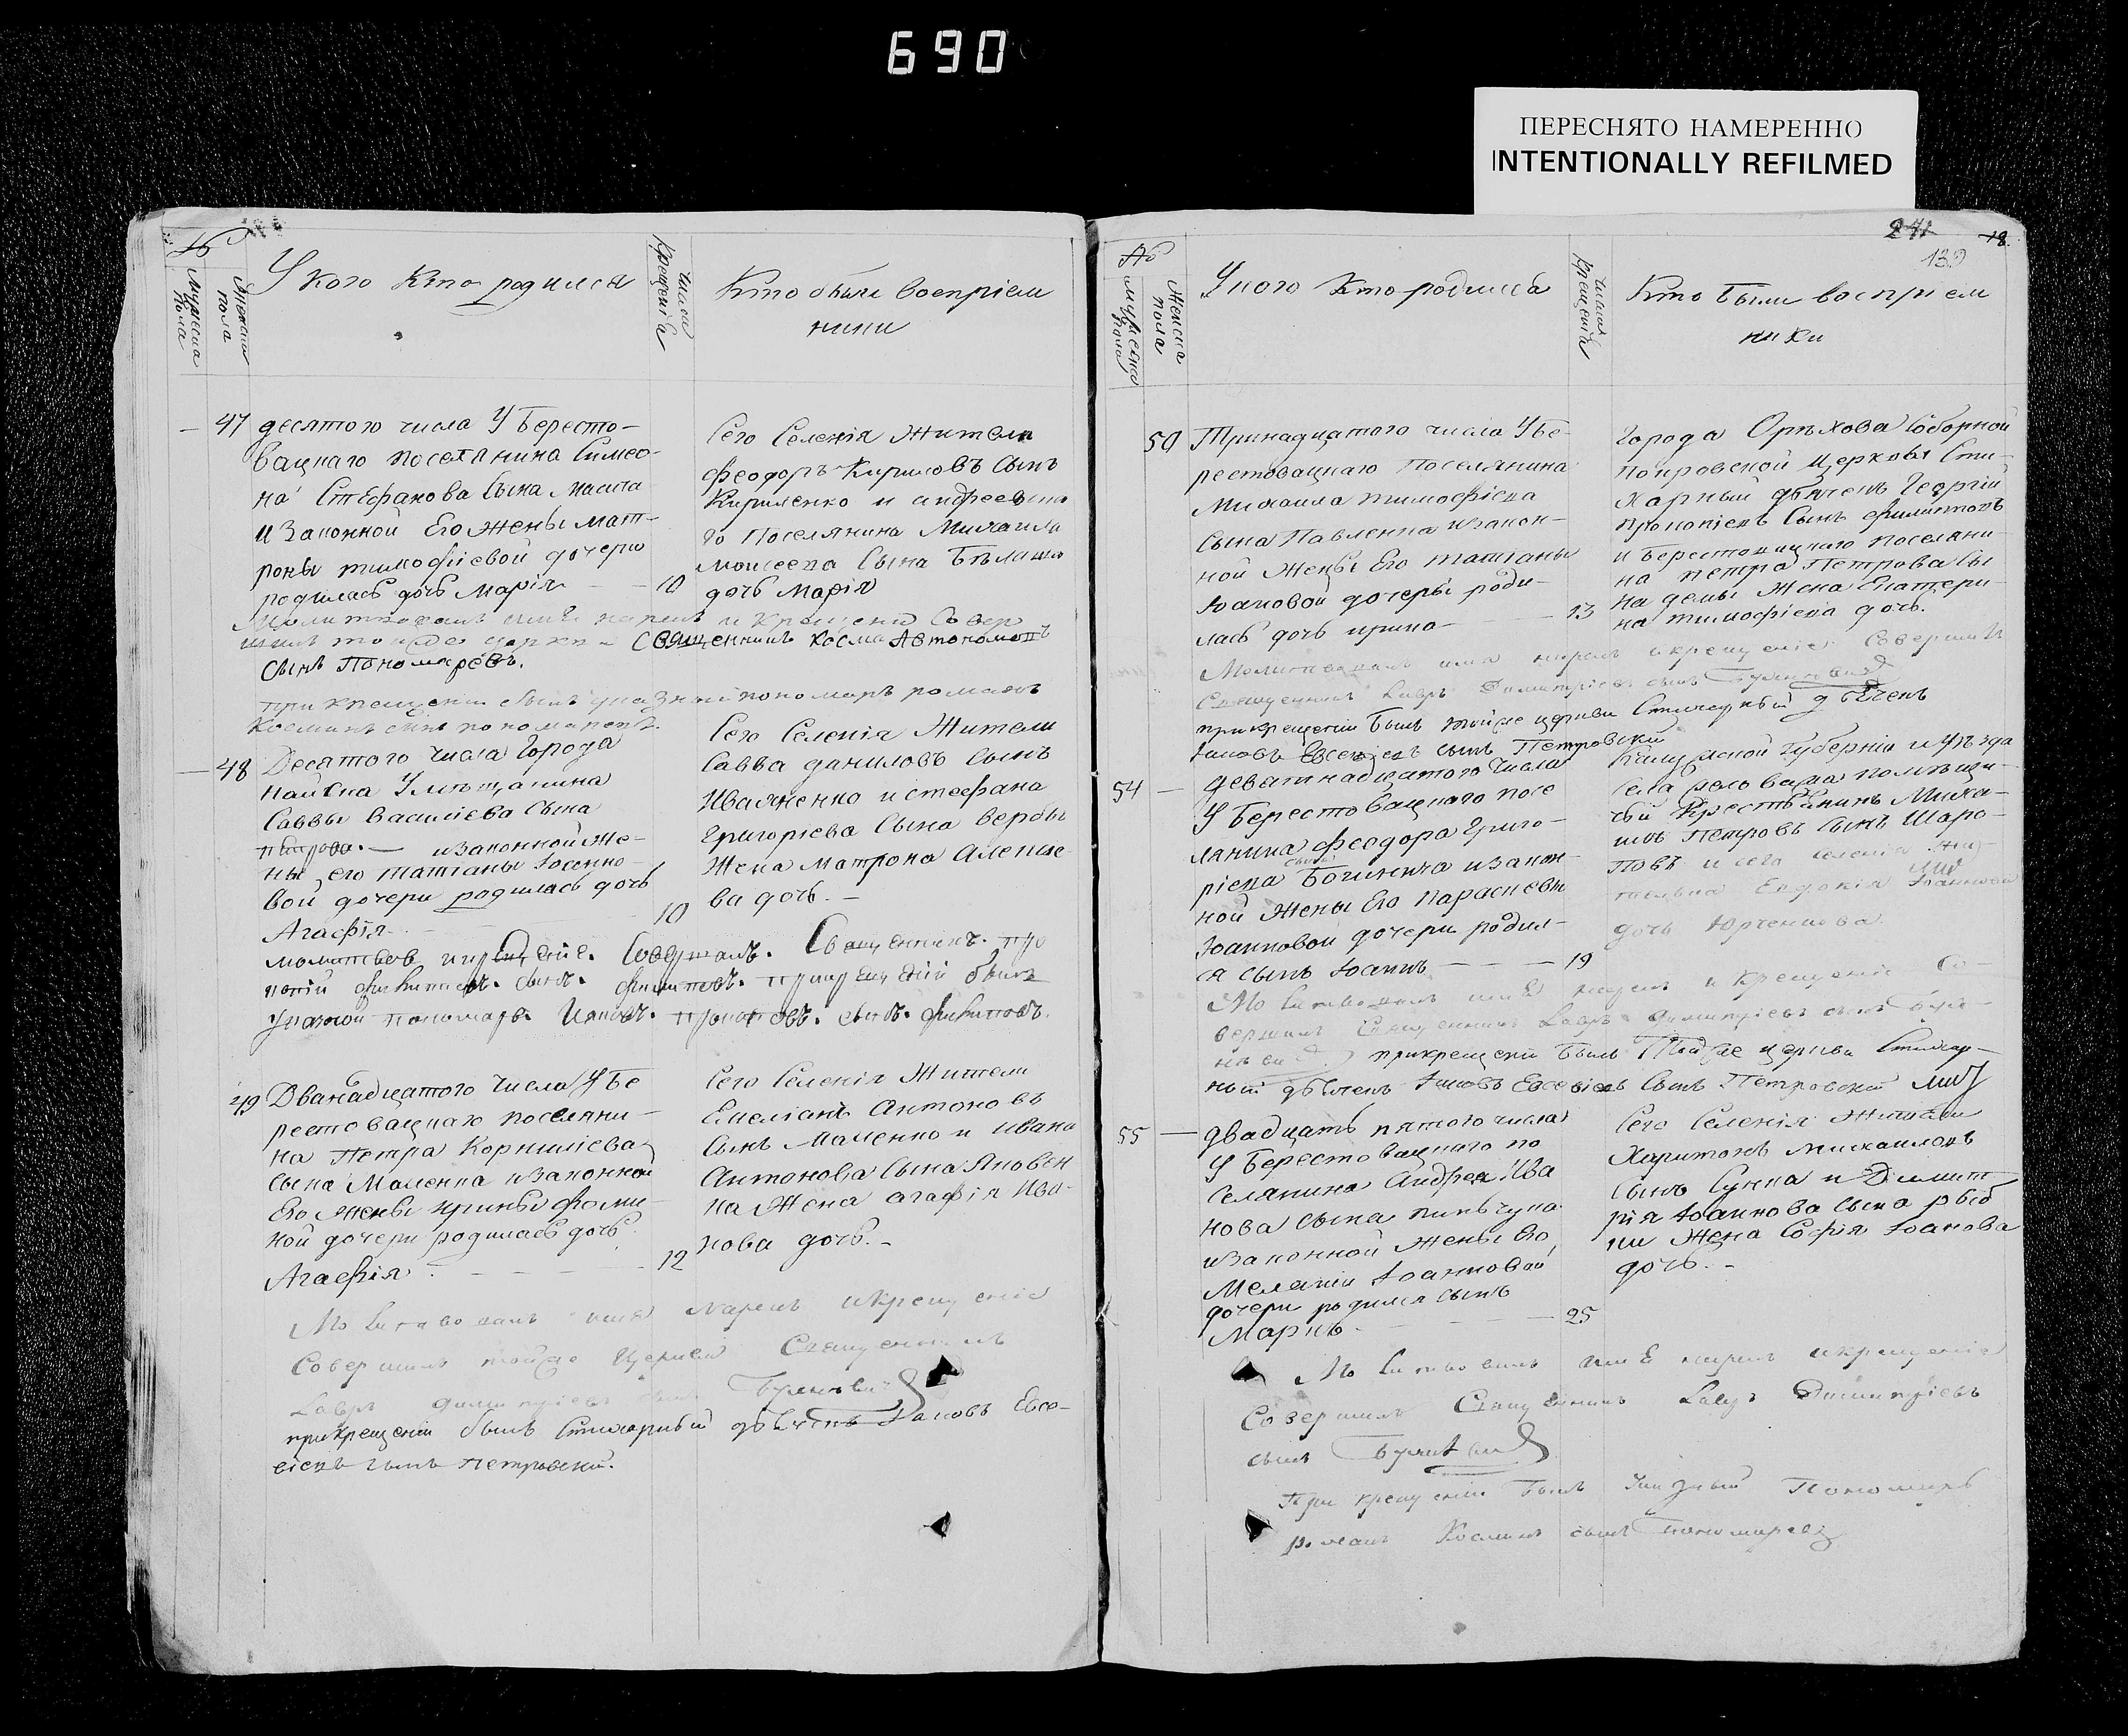 690
ПЕРЕСНЯТО НАМЕРЕННО
INTENTIONALLY REFILMED
№
Мужеска пола
Женска пола
У кого кто родился
Число крещенія
Кто были воспріем
ники
47 десятого числа У Бересто-
вацкаго поселянина Симео-
на Стефанова сына
и законной Его жены мат-
роны тимофіевой дочери
родилась дочь марія 10
Сего Селенія Жители
феодоръ Кириловъ сынъ
Кириленко и андреевска
го Поселянина Михаила
моисеева Сына
дочь марія
имя нарекъ и Крещеніе Совер
шилъ тойже церкви Священникъ Косма Автономовъ
сынъ Пономаревъ.
при крещеніи былъ указный пономарь романъ
Косминъ сынъ пономаревъ.
48 Десятого числа Города
У мѣщанина
Саввы василіева сына
петрова. — и законной Же-
ны его татіаны
вой дочери родилась дочь
Агафія 10
Сего Селенія Жители
Савва даниловъ сынъ
Иваненко и стефана
Григоріева Сына вербы
Жена матрона Алексѣе
ва дочь. —
молитвов и крещеніе. Совершалъ. Священникъ. про
копій филиповъ. сынъ. филиповъ. при крещеніи былъ
указной пономарь. Иаковъ. прокоповъ. сынъ. филиповъ.
49 Дванадцатого Числа У Бе
рестовацкаго поселяни-
на Петра Корниліева
сына Маленка и законной
Его жены ирины фоми
ной дочери родилась дочь
Агафія 12
Сего Селенія Жители
Емеліанъ Антоновъ
сынъ Маленко и ивана
Антонова Сына Яковен
ка Жена агафія Ива-
нова дочь. —
имя нарекъ и крещеніе
Совершилъ тойже Церкви Священникъ
Лавръ Димитріевъ сынъ
при крещеніи былъ Стихарный дьячекъ Іаковъ Евсе-
віевъ сынъ Петровскій.
241
18
139
№
Мужеска пола
Женска пола
У кого Кто родился
Число крещенія
Кто были воспріем
ники
50 Тринадцатого числа У Бе-
рестовацкаго Поселянина
Михаила тимофіева
сына Павленка и закон-
ной Жены Его татіаны
Іоановой дочеры роди-
лась дочь ирина 13
Города Орѣхова Соборной
покровской Церквы Сти-
харный дьячекъ Георгій
Прокопіевъ Сынъ филиповъ
и Берестовацкаго поселяни-
на петра Петрова сы
на Жена Екатери-
на тимофіева дочь.
имя нарекъ и крещеніе Совершилъ
Священникъ Лавръ Димитріевъ сынъ
при крещеніи былъ тойже церкви Стихарный дьячекъ
Іаковъ Евсевіевъ сынъ Петровскій
54 девятнадцатого Числа
У Берестовацкаго посе
лянина феодора Григо-
ріева сына и закон-
ной Жены Его Параскевы
Іоанновой дочери родил-
ся сынъ Іоаннъ 19
Губерніи и уѣзда
села помѣщи-
чій Крестьянинъ Миха-
илъ Петровъ сынъ Шаро-
повъ и сего селенія жи-
тельна Евдокія Іоаннова
дочь Юрченкова
имя нарекъ и Крещеніе Со-
вершилъ Священникъ Лавръ Димитріевъ сынъ
при крещеніи былъ Тойже церкви Стихар-
ный дьячекъ Іаковъ Евсевіевъ Сынъ Петровскій
55 двадцать пятого числа
У Берестовацкаго по
селянина Андрея Ива
нова сына
и законной Жены Его
Меланіи Іоанновой
дочери родился сынъ
Маркъ 25
Сего Селенія Жители
Харитонъ михаиловъ
сынъ и Димит
рія Іоаннова сына
Жена Софія Іоанова
дочь. —
имя нарекъ и крещеніе
Совершилъ Священникъ Лавръ Димитріевъ
сынъ
При крещеніи былъ Указный Пономарь
романъ Косминъ сынъ пономаревъ